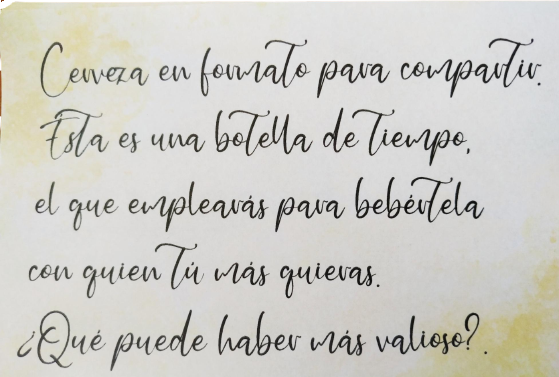 Cerveza en formato para compartir.
Esta es una botella de tiempo,
el que emplearás para bebértela
con quien tú más quieras.
¿Qué puede haber más valioso?.